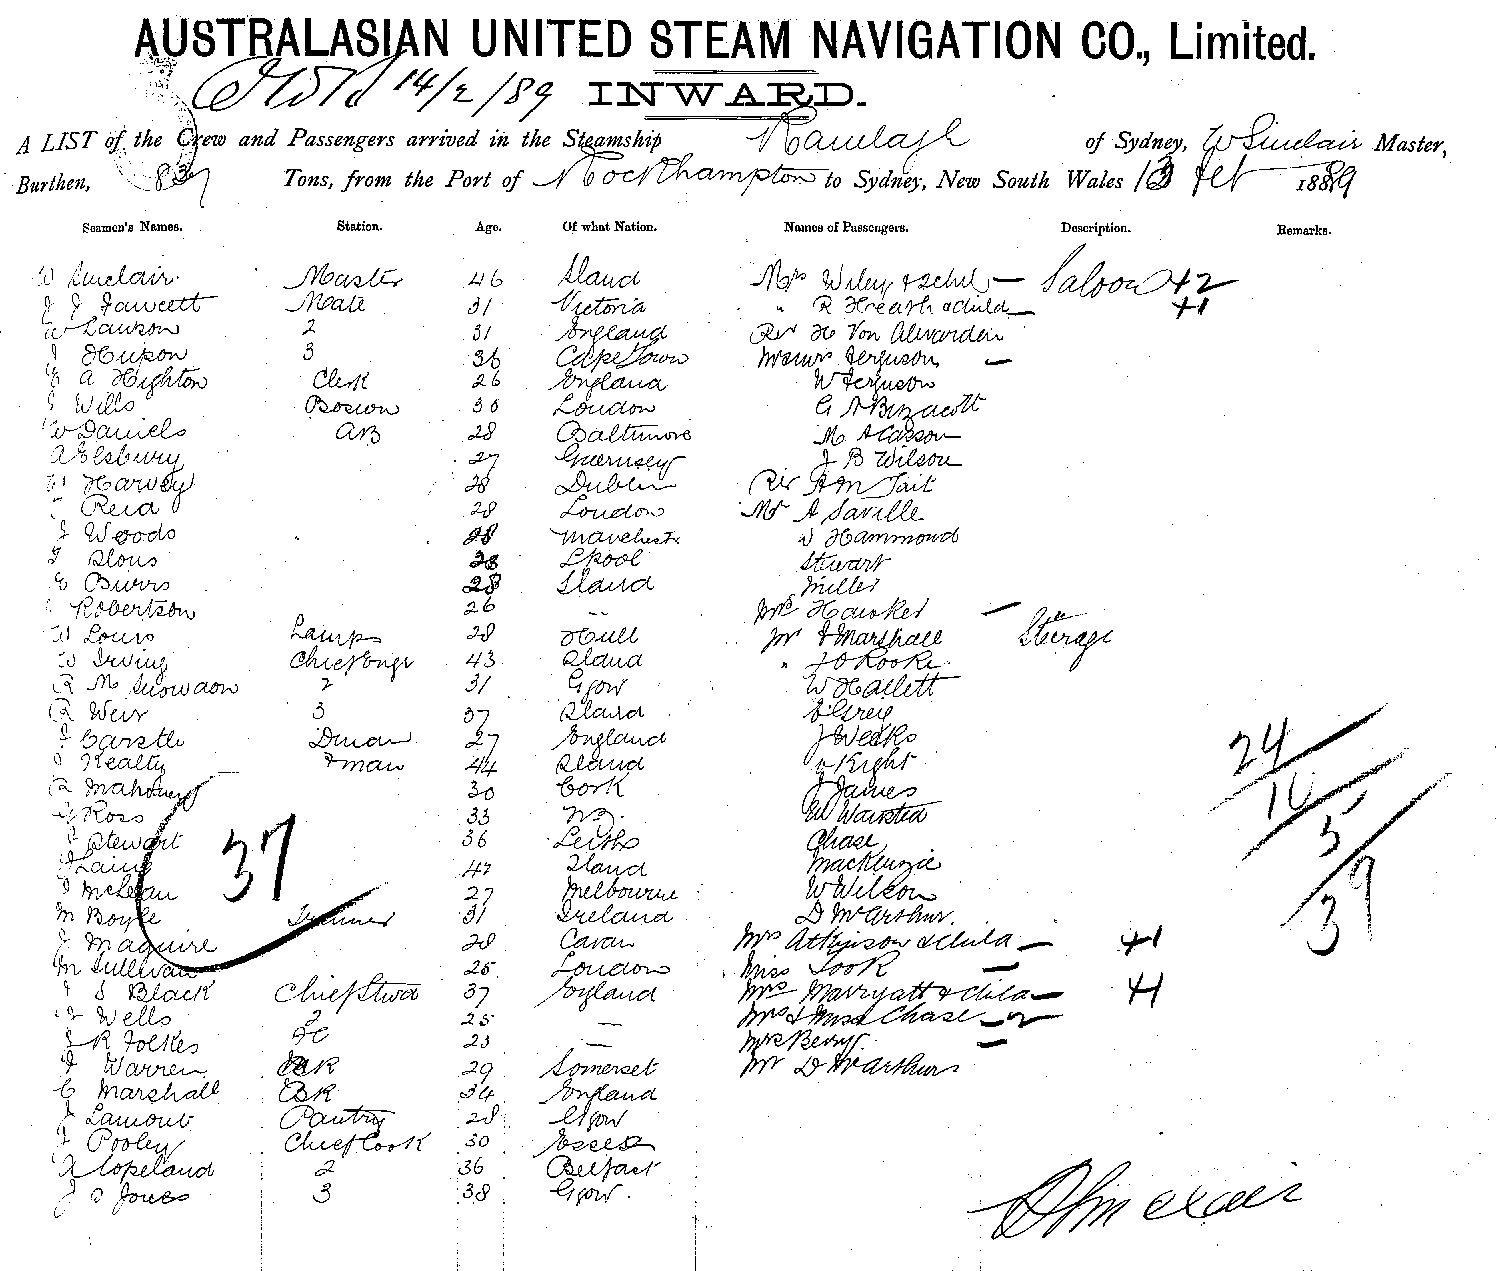 AUSTRALASIAN UNITED STEAM NAVIGATION CO., Limited.
14/2/89 INWARD.
A LIST of the Crew and Passengers arrived in the Steamship Ranelagh of Sydney, W Sinclair Master,
Burthen, 837 Tons, from the Port of Rockhampton to Sydney, New South Wales 13 Feb 1889
Seamen's Names. Station. Age. Of what Nation. Names of Passengers. Description. Remarks.
W Sinclair Master 46 Sland Mrs Wiley & Saloon +2
J J Fawcett Mate 31 Victoria " R Heath & child +1
W Lawson 2 31 England Rev H Von Alwarden
J Hixon 3 36 Cape Town Ferguson
E A Highton Clerk 26 England W Ferguson
J Wills Bosion 36 London G A Buzacott
W Daniels AB 28 Baltimore M A Casson
A Elsbury 27 Guernsey J B Wilson
Harvey 28 Dublin Rev Tait
Reid 28 London Mr A Saville
J Woods 28 Manchestr Hammond
28 Lpool Stewart
E Burrs 28 Sland Miller
Robertson 26 Mrs Hawker
W Louis Lamps 28 Hull Mr J Marshall Steerage
W Irving Chief Engr 43 Sland " J O Rooke
R M Snowdon 2 31 Glgow W Hallett
R Weir 3 37 Sland Grey
J Carstle Dman 27 England J Weeks
Kealty Fman 44 Sland Kight
R Mahoney 30 Cork J James
Ross 33 NZ. W Warsted
Stewart 36 Leith Chase
Laing 42 Sland Mackenzie
McLean 27 Melbourne W Wilson
M Boyle Trimmer 31 Ireland D McArthur.
J Maguire 28 Cavan Mrs Atkinson & child +1
M Sullivan 25 London Miss Took
J S Black Chief Stwd 37 England Mrs Marryatt & child +1
J Wells 2 25 — Mrs & Miss Chase 2
R Folkes FC 23 — Mrs Berry
J Warren BK 29 Somerset Mr D McArthur
C Marshall BK 34 England
J Lamont Pantry 28 Glgow
J Pooley Chief Cook 30 Essex
A Copeland 2 36 Belfast
J O Jones 3 38 Glgow.
37
24
10
5
9
3
Sinclair